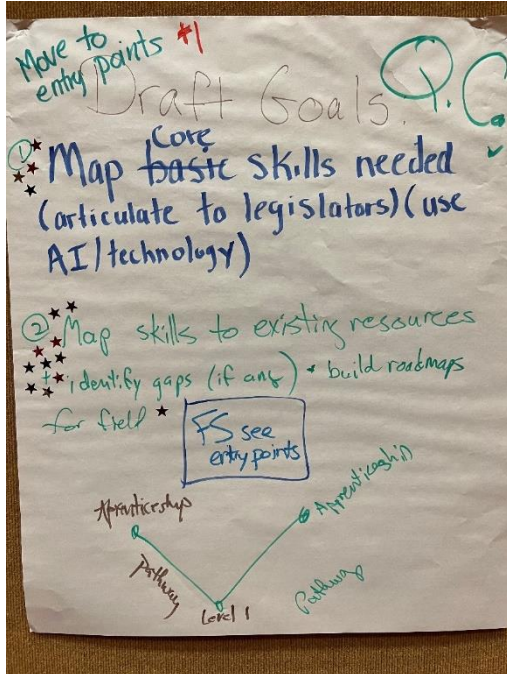 Move to
entry points #1
Draft Goals. Q.C.
① Map Core baste skills needed
(articulate to legislators) (use
AI/technology)
② Map skills to existing resources
+ identify gaps (if any) + build roadmaps
for field
FS see
entry points
Aprenticership
Apprenticeship
Pathway
Pathway
Level 1